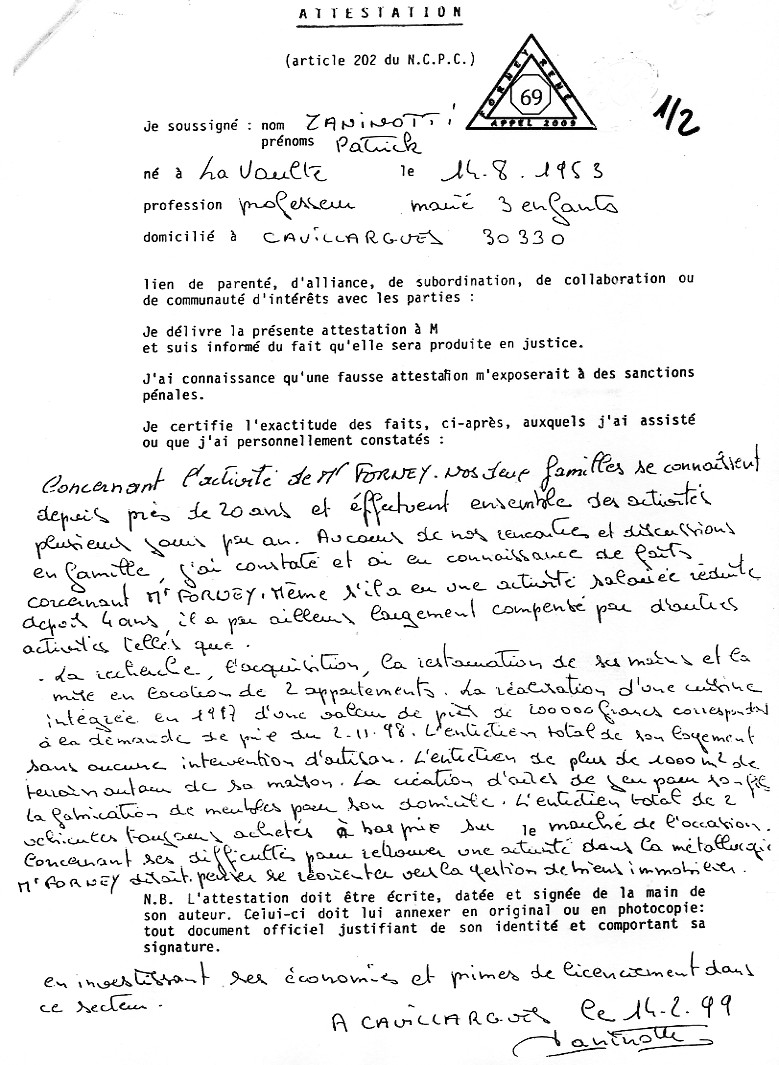 ATTESTATION
(article 202 du N.C.P.C.)
FORNEY RENE
69
APPEL 2009
1/2
Je soussigné : nom ZANINOTTI
prénoms Patrick
né à La Voulte le 14.8.1953
profession professeur marié 3 enfants
domicilié à CAVILLARGUES 30330
lien de parenté, d'alliance, de subordination, de collaboration ou
de communauté d'intérêts avec les parties :
Je délivre la présente attestation à M
et suis informé du fait qu'elle sera produite en justice.
J'ai connaissance qu'une fausse attestation m'exposerait à des sanctions
pénales.
Je certifie l'exactitude des faits, ci-après, auxquels j'ai assisté
ou que j'ai personnellement constatés :
Concernant l'activité de Mr FORNEY. Nos deux familles se connaissent
depuis près de 20 ans et éffectuent ensemble des activités
plusieurs jours par an. Au cours de nos rencontres et discussions
en famille, j'ai constaté et ai eu connaissance de faits
concernant Mr FORNEY. Même s'il a eu une activité salariée réduite
depuis 4 ans, il a par ailleurs largement compensé par d'autres
activités telles que.
. La recherche, l'acquisition, la restauration de ses mains et la
mise en location de 2 appartements. La réalisation d'une cuisine
intégrée en 1997 d'une valeur de près de 200000 francs correspondant
à la demande de prix du 2.11.98. L'entretien total de son logement
sans aucune intervention d'artisan. L'entretien de plus de 1000 m2 de
terrain autour de sa maison. La création d'aires de jeu pour son fils
La fabrication de meubles pour son domicile. L'entretien total de 2
vehicules toujours achetés à bas prix sur le marché de l'occasion.
Concernant ses difficultés pour retrouver une activité dans la métallurgie
Mr FORNEY disait penser se réorienter vers la gestion de biens immobilier.
N.B. L'attestation doit être écrite, datée et signée de la main de
son auteur. Celui-ci doit lui annexer en original ou en photocopie:
tout document officiel justifiant de son identité et comportant sa
signature.
en investissant ses économies et primes de licenciement dans
ce secteur.
A CAVILLARGUES le 14.2.99
Zaninotti